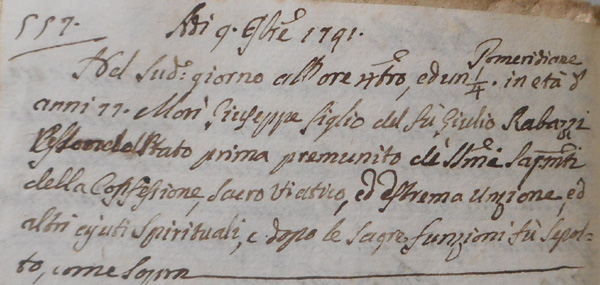 557. Adi 9. Gbre 1791.
Nel sud.o giorno all'ore 4tro, ed un 1/4. Pomeridiane in età d'
anni 77. Morì Giuseppe figlio del fù Giulio Rabazzi
Essendo stato prima premunito de SSmi Sagmti
della Confessione, sacro Viatico, ed estrema unzione, ed
altri ajuti Spirituali, e dopo le sagre funzioni fù sepol=
to, come sopra